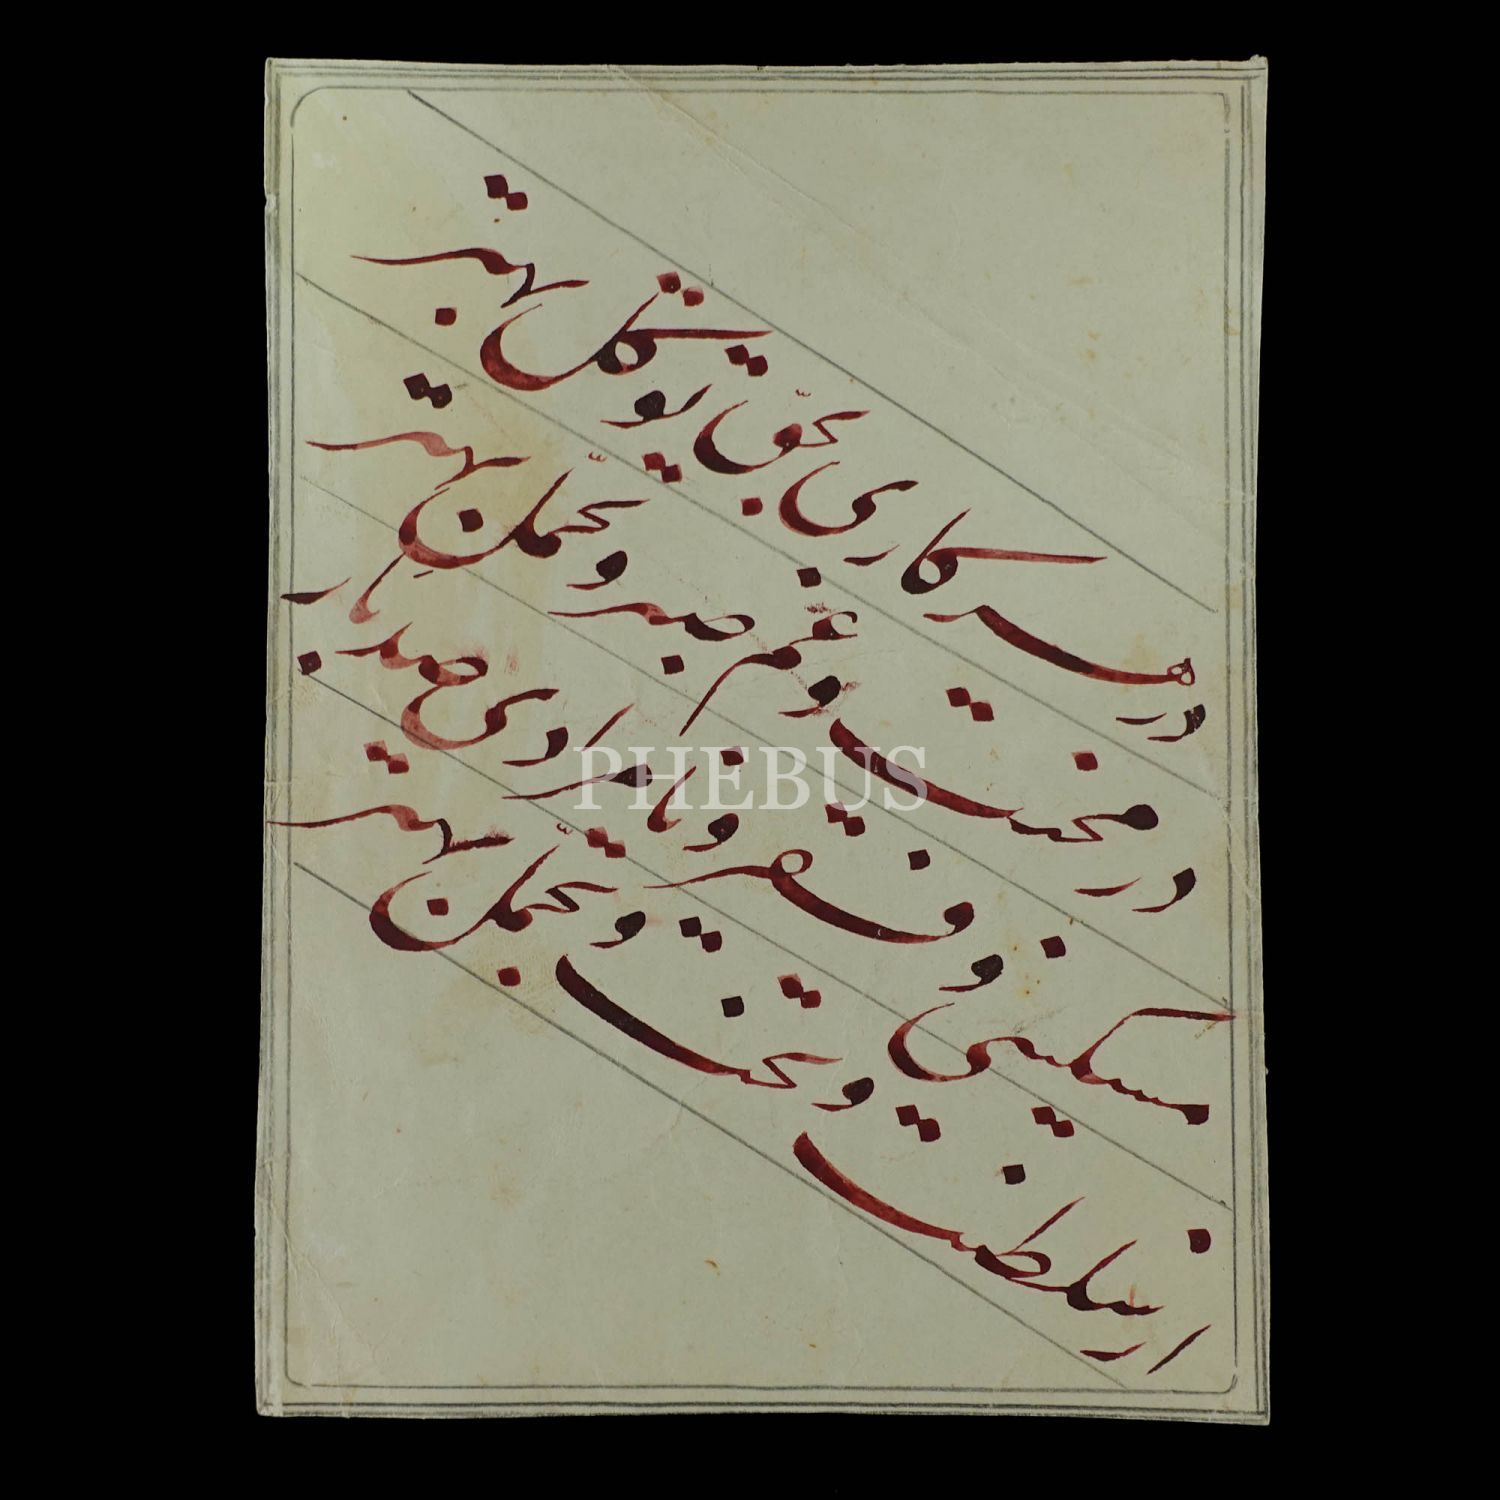 در هر کاری بحق توکل بهتر
در محنت و غم صبر و تحمل بهتر
مسکینی و فقر و نامرادی صد بار
از سلطنت و تخت و تجمل بهتر
PHEBUS